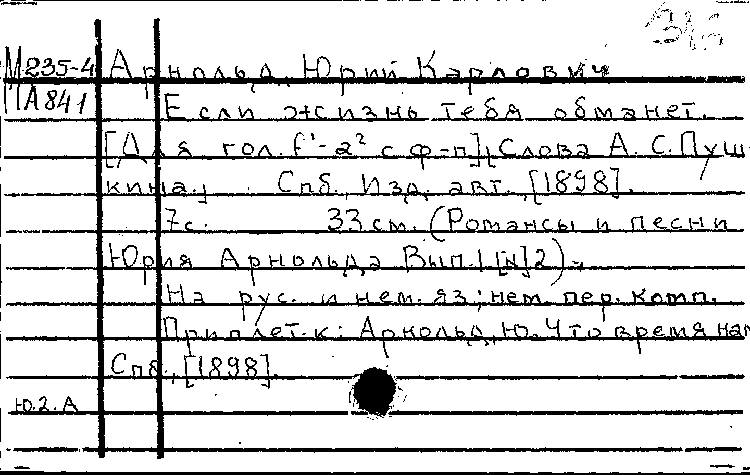 М235-4 Арнольд, Юрий Карлович
А841 Если жизнь тебя обманет.
[Для гол. f¹-a² с ф-п]. Слова А. С. Пуш
кина. Спб., Изд. авт., [1898].
7с. 33 см. (Романсы и песни
Юрия Арнольда Вып. I [N] 2).
На рус. и нем. яз; нем. пер. комп.
Приплет. к: Арнольд, Ю. Что время нам
Спб., [1898].
Ю.2.А